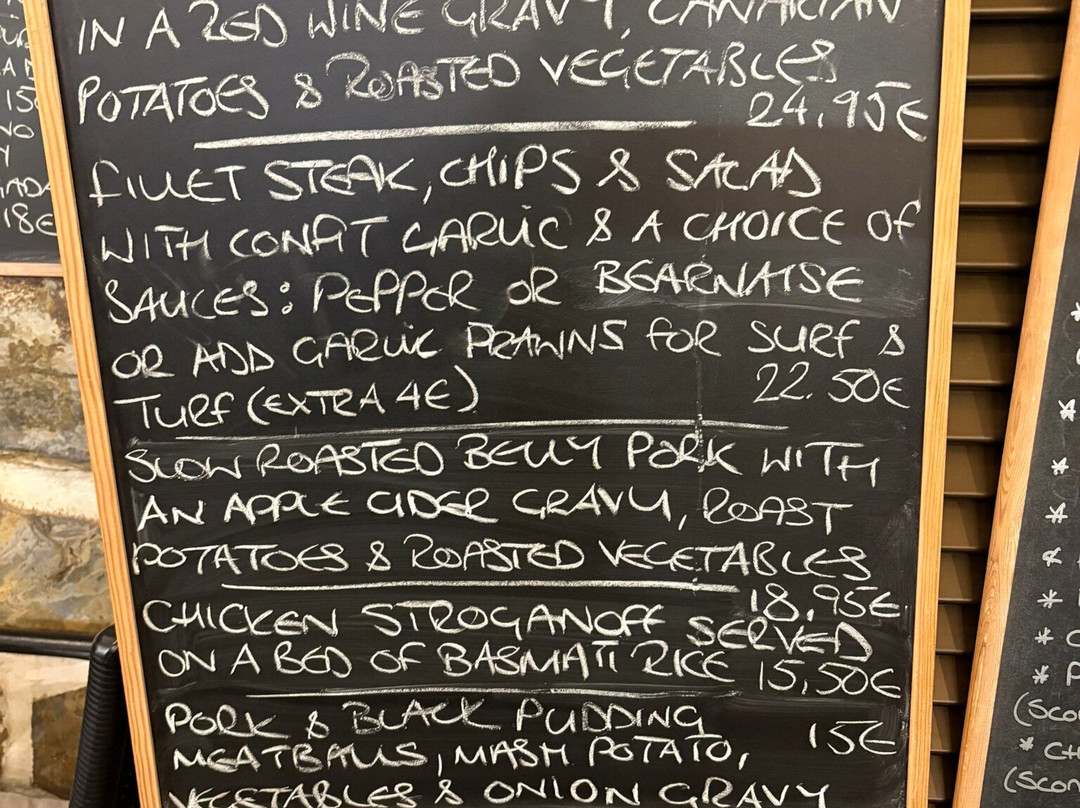 IN A RED WINE GRAVY, CANARIAN
POTATOES & ROASTED VEGETABLES
24,95€
FILLET STEAK, CHIPS & SALAD
WITH CONFIT GARLIC & A CHOICE OF
SAUCES: PEPPER OR BEARNAISE
OR ADD GARLIC PRAWNS FOR SURF &
TURF (EXTRA 4€) 22.50€
SLOW ROASTED BELLY PORK WITH
AN APPLE CIDER GRAVY, ROAST
POTATOES & ROASTED VEGETABLES
18,95€
CHICKEN STROGANOFF SERVED
ON A BED OF BASMATI RICE 15,50€
PORK & BLACK PUDDING 15€
MEATBALLS, MASH POTATO,
VEGETABLES & ONION GRAVY
18€